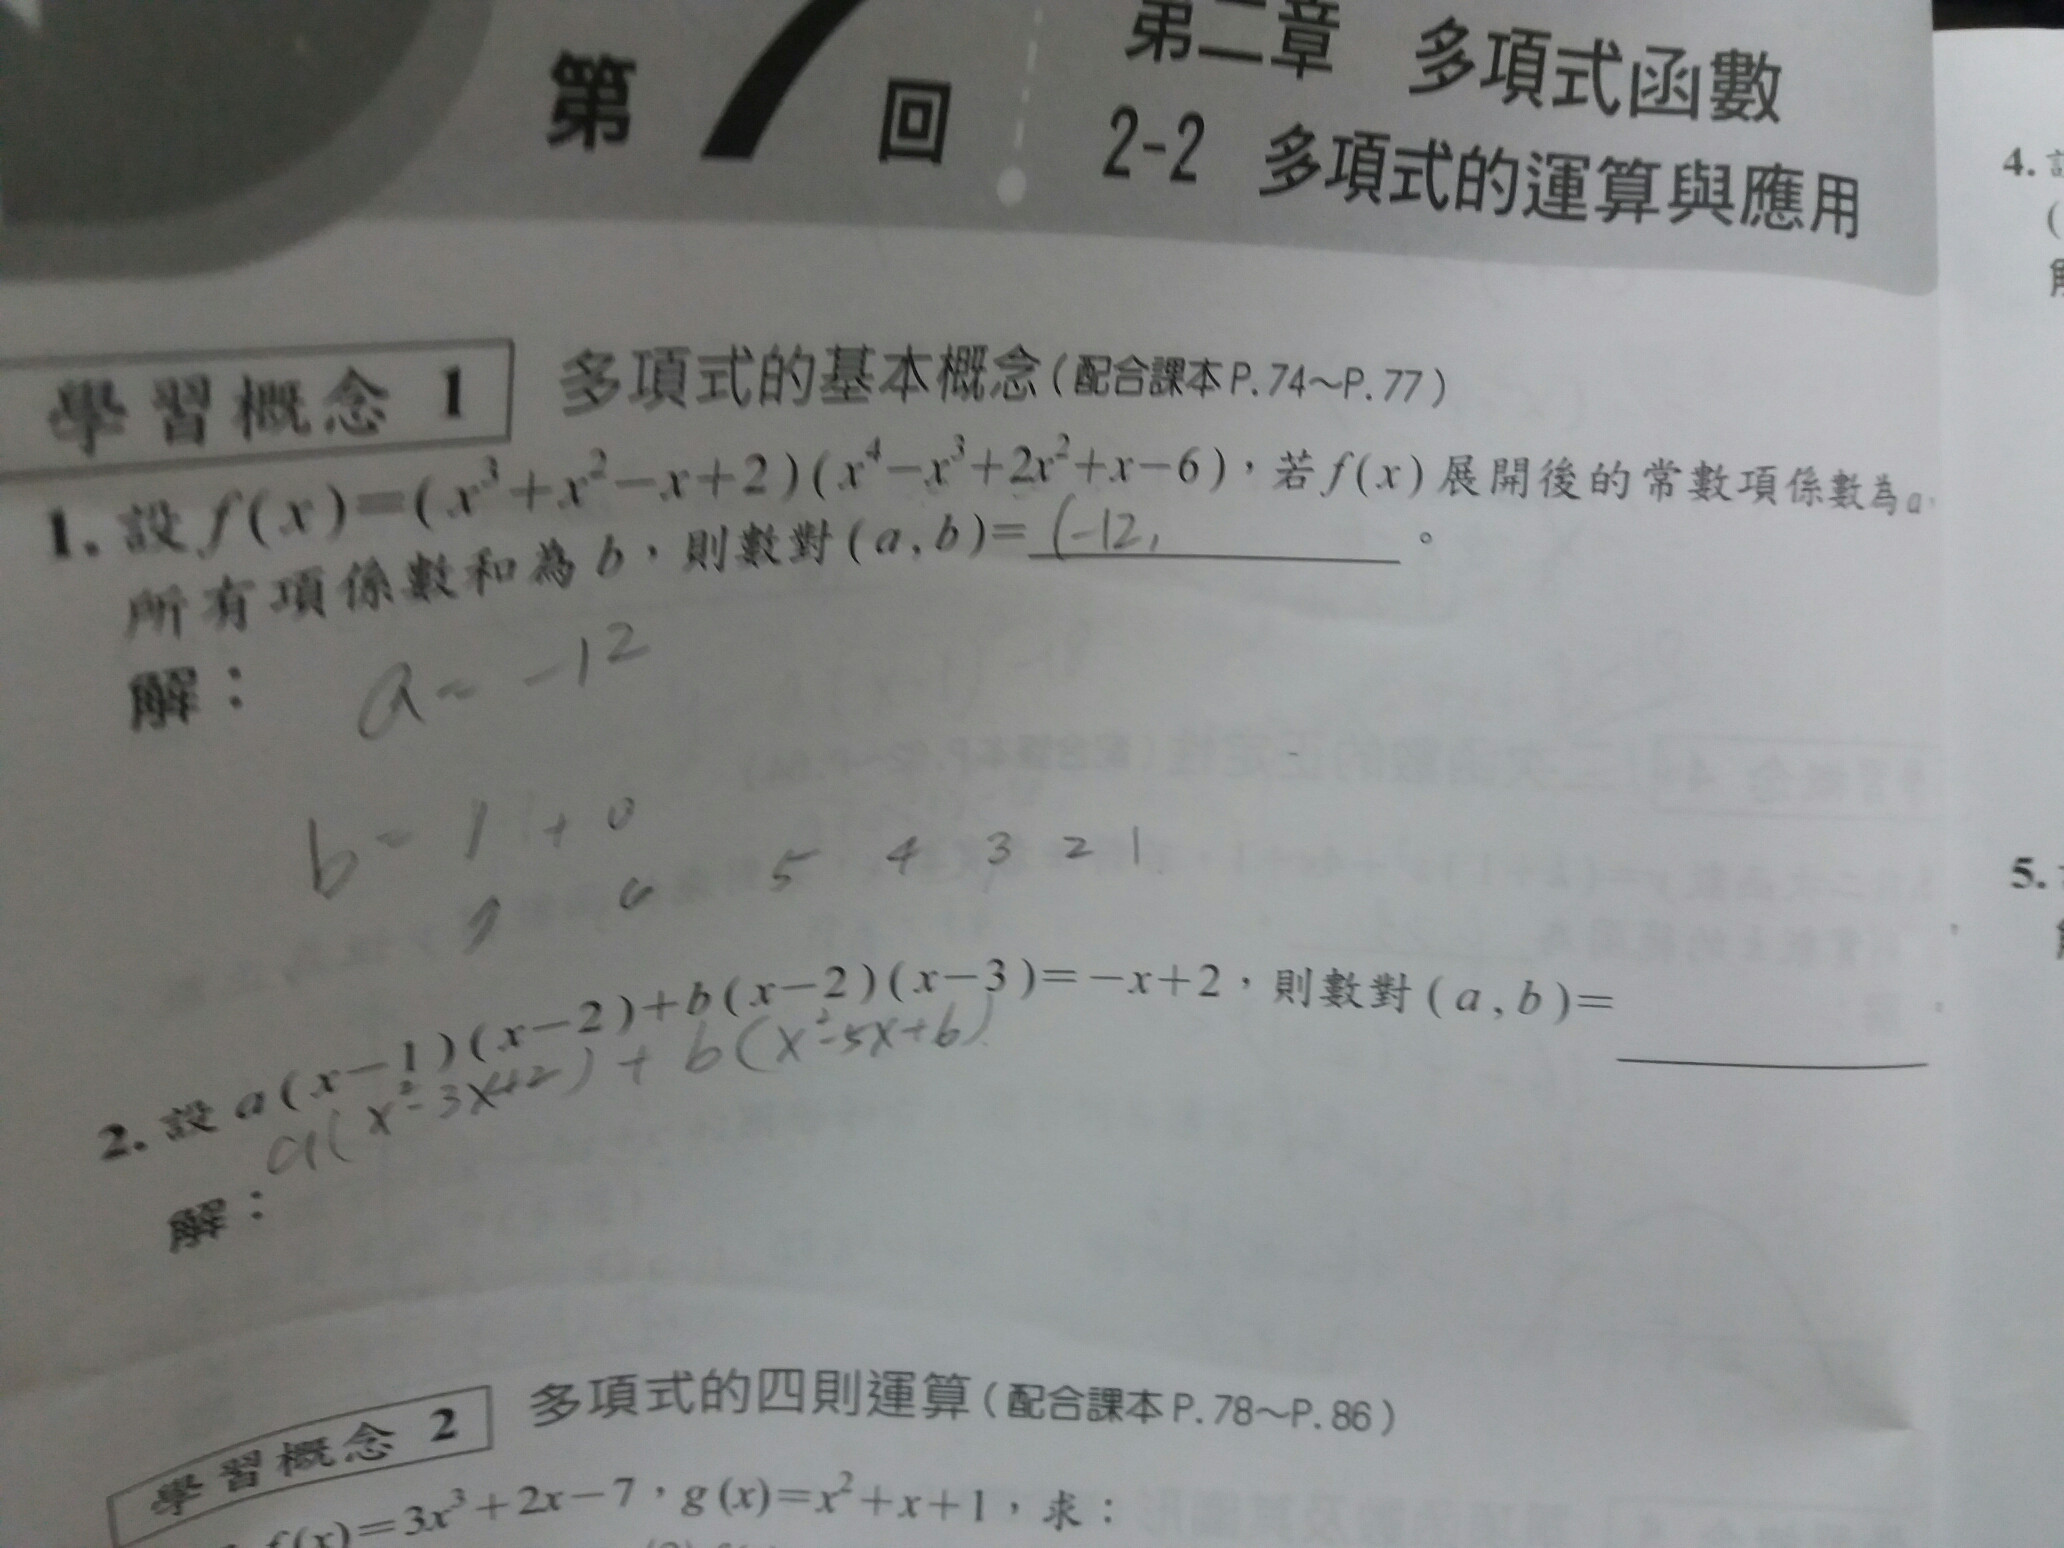 第7回
第二章 多項式函數
2-2 多項式的運算與應用
學習概念 1 多項式的基本概念(配合課本P.74~P.77)
1. 設 f(x)=(x³+x²-x+2)(x⁴-x³+2x²+x-6),若f(x)展開後的常數項係數為a,
所有項係數和為b,則數對(a,b)= (-12, 。
解: a= -12
b= 1 + 0
7 6 5 4 3 2 1
2. 設 a(x-1)(x-2)+b(x-2)(x-3)=-x+2,則數對(a,b)=
a(x²-3x+2)+b(x²-5x+6)
解:
學習概念 2 多項式的四則運算(配合課本P.78~P.86)
f(x)=3x³+2x-7,g(x)=x²+x+1,求:
4.
(
5.